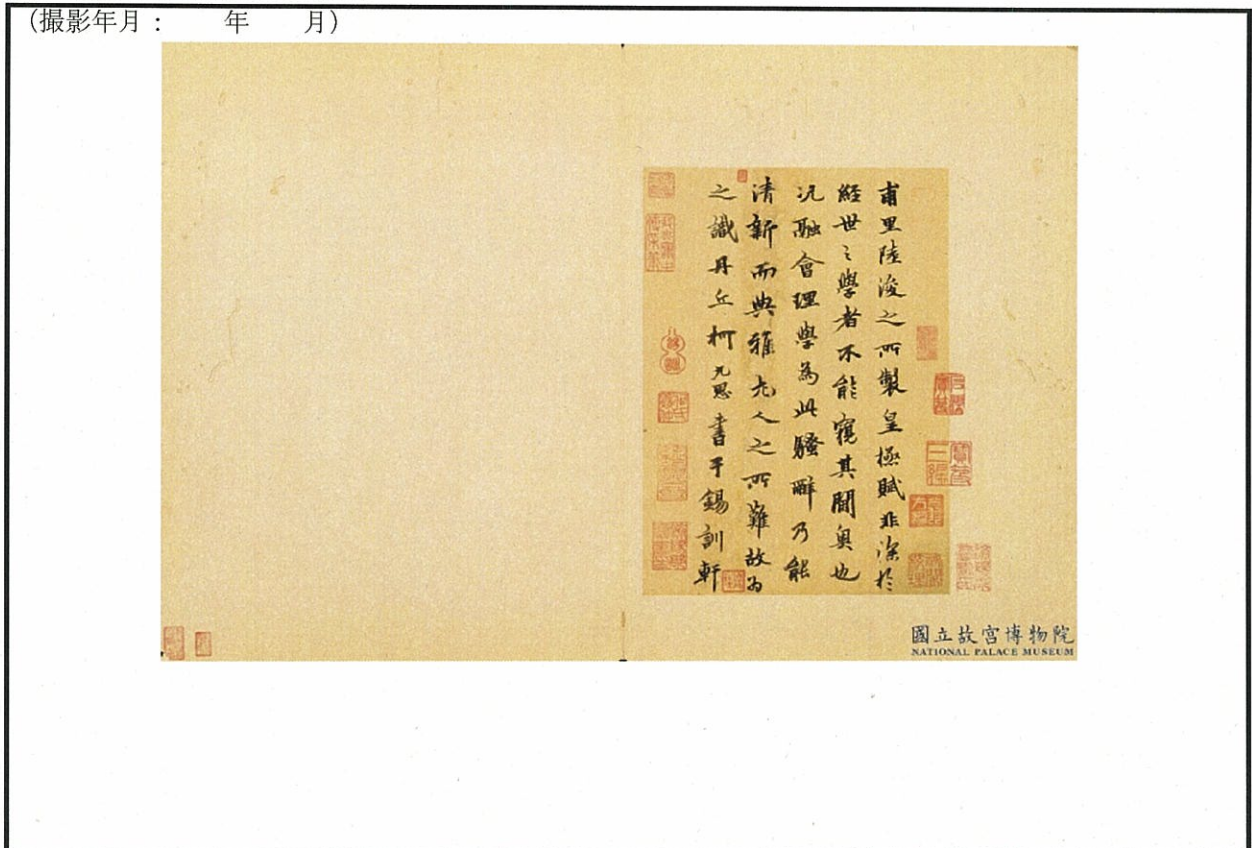 (撮影年月:　　年　　月)
甫里陸浚之所製皇極賦非深於
經世之學者不能窺其閫奥也
況融會理學為此騷辭乃能
清新而典雅尤人之所難故為
之識丹丘柯九思書于錫訓軒
國立故宮博物院
NATIONAL PALACE MUSEUM